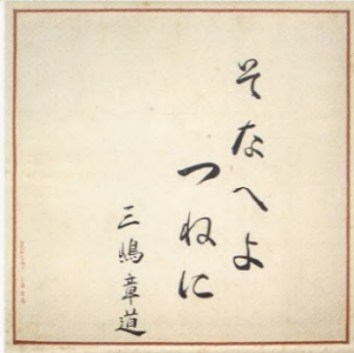 そなへよ
つねに
三嶋章道